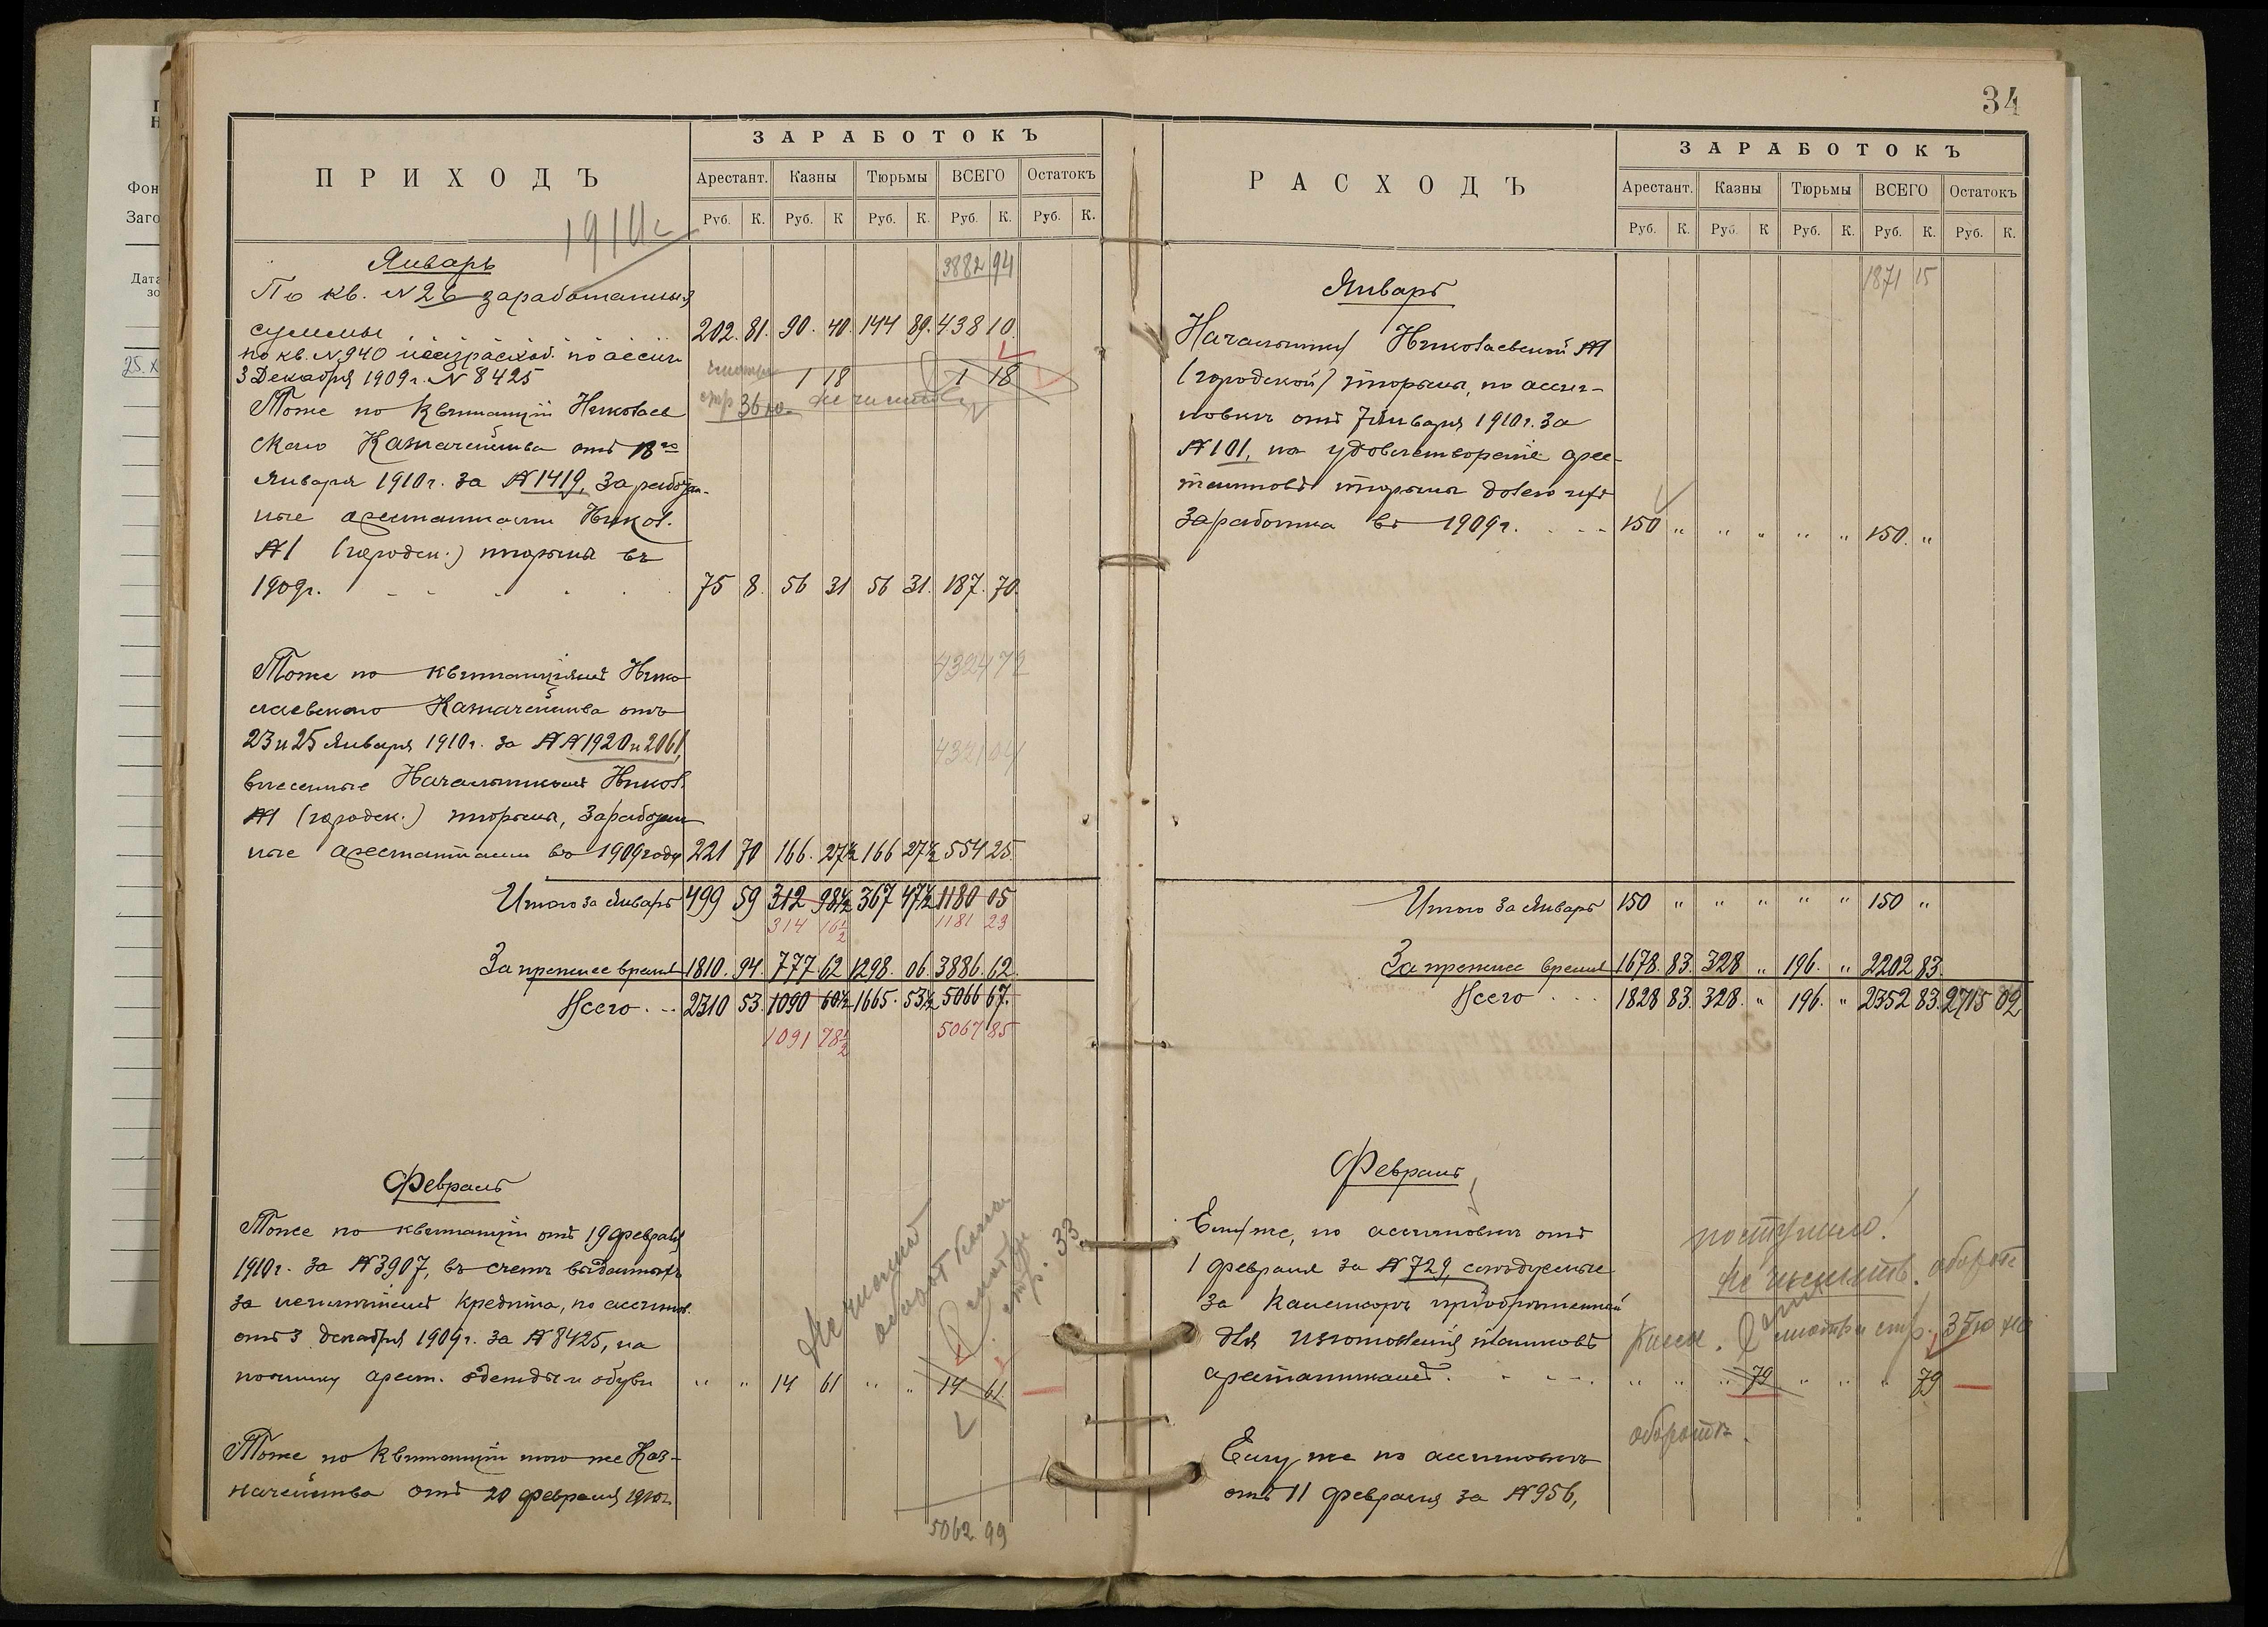 34
ПРИХОДЪ
ЗАРАБОТОКЪ
Арестант. Казны Тюрьмы ВСЕГО Остатокъ
Руб. К. Руб. К Руб. К. Руб. К. Руб. К.
1910 г
Январь
3882 94
По кв. № 26 заработанныя
суммы 202. 81. 90. 40. 144 89. 438 10.
по кв. № 940 неизрасход. по ассиг
3 Декабря 1909 г. № 8425 1 18 1 18
стр 36
Тоже по Квитанціи Николаев
скаго Казначейства отъ 18го
Января 1910 г. за № 1419, заработан-
ные арестантами Никол.
№1 (городск.) тюрьмы въ
1909 г. 75 8. 56 31 56 31. 187. 70.
4324 72
Тоже по квитанціямъ Нико
лаевскаго Казначейства отъ
23 и 25 Января 1910 г. за №№ 1920 и 2061,
4321 04
внесенные Начальникомъ Никол.
№1 (городск.) тюрьмы, заработан
ные арестантами въ 1909 году 221 70 166. 27½ 166 27½ 554 25.
Итого за Январь 499 59 312 98½ 367 47½ 1180 05
314 16½ 1181 23
За прежнее время 1810. 94. 777 62 1298. 06. 3886. 62.
Всего 2310 53. 1090 60½ 1665. 53½ 5066 67.
1091 78½ 5067 85
Февраль
Тоже по квитанціи отъ 19 февраля
1910 г. за № 3907, въ счетъ выданныхъ
за неимѣніемъ кредита, по ассигнов.
отъ 3 декабря 1909 г. за № 8425, на
починку арест. одежды и обуви " " 14 61 " " 14 61
стр. 33
Тоже по Квитанціи того же Каз-
начейства отъ 20 февраля 1910 г.
5062 99
РАСХОДЪ
ЗАРАБОТОКЪ
Арестант. Казны Тюрьмы ВСЕГО Остатокъ
Руб. К. Руб. К Руб. К. Руб. К. Руб. К.
1871 15
Январь
Начальнику Николаевской №1
(городской) тюрьмы, по ассиг-
новкѣ отъ 7 Января 1910 г. за
№ 101, на удовлетвореніе арес-
тантовъ тюрьмы долею ихъ
заработка въ 1909 г. 150 " " " " " 150. "
Итого за Январь 150 " " " " " 150 "
За прежнее время 1678. 83. 328 " 196. " 2202 83.
Всего 1828 83. 328. " 196. " 2352 83. 2715 02
Февраль
Ему же, по ассигновкѣ отъ
1 февраля за № 729, слѣдуемые
за
для изготовленія
арестантамъ. " " " 79 " " " 79
поступило!
не числить.
оборотъ.
Ему же по ассигновкѣ
отъ 11 февраля за № 956,